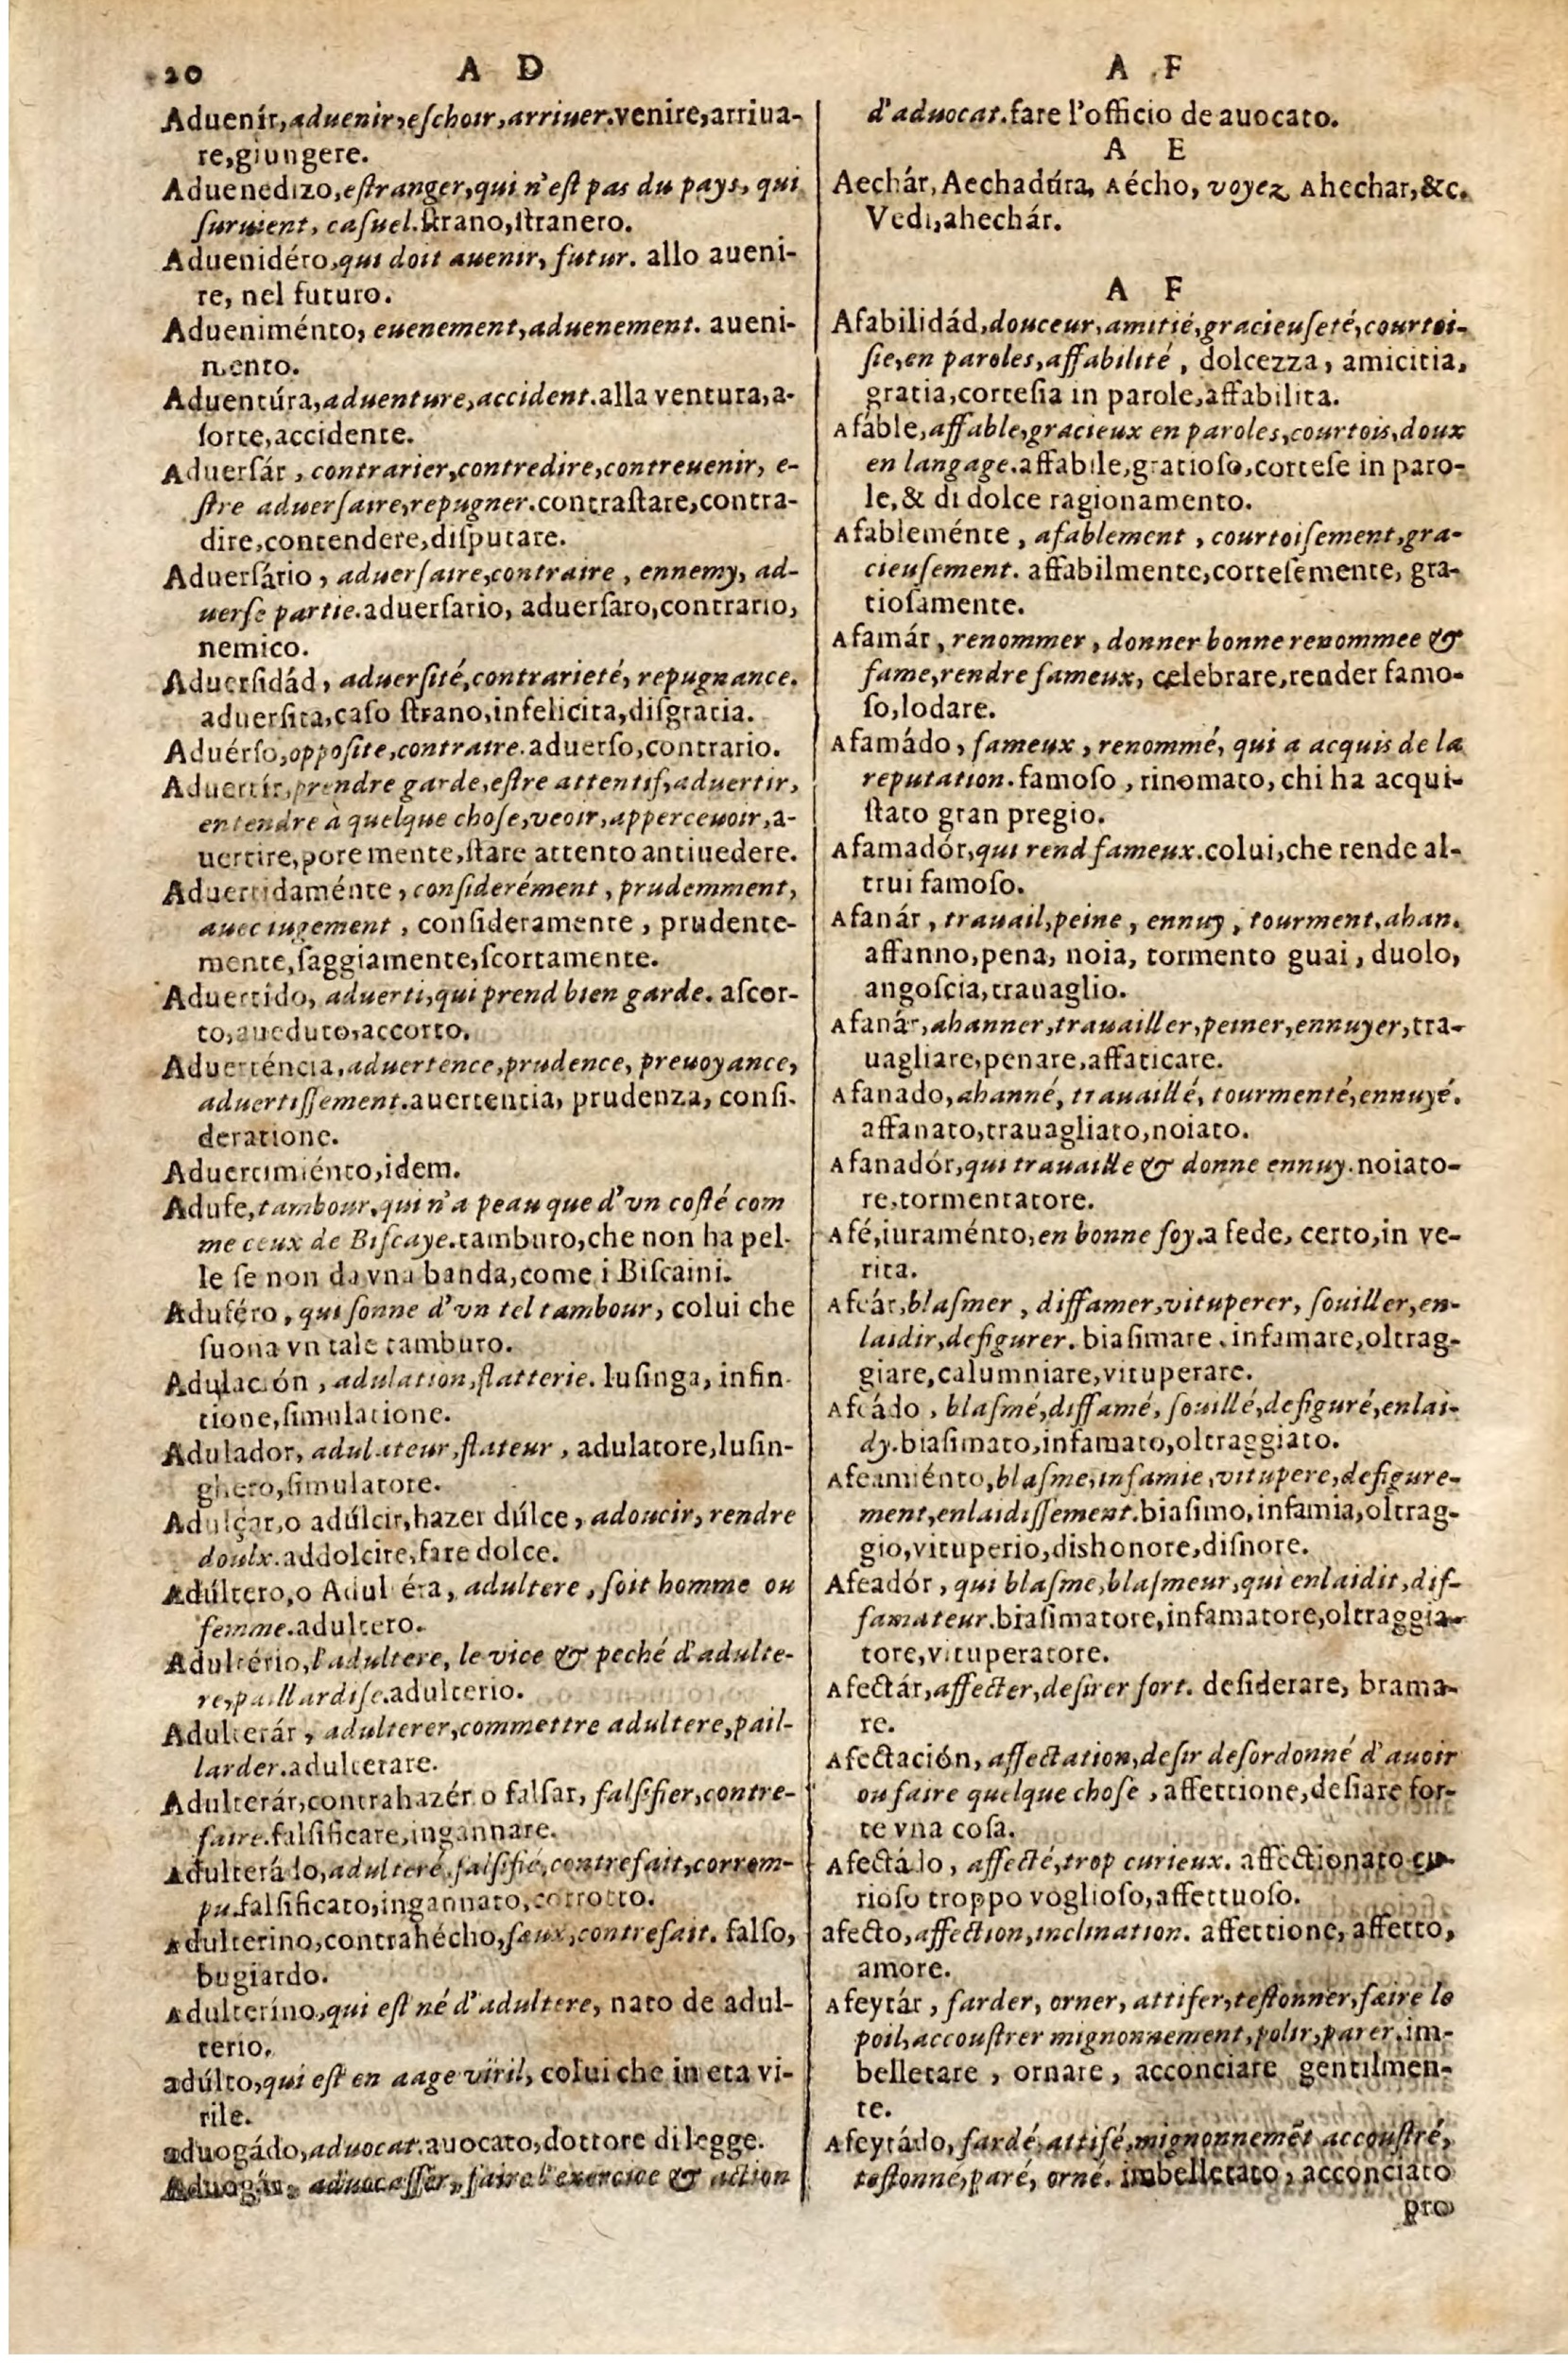 20 A D
Aduenír, aduenir, eſchoir, arriuer. venire, arriua-
re, giungere.
Aduenedizo, eſtranger, qui n'eſt pas du pays, qui
ſuruient, caſuel. ſtrano, ſtranero.
Aduenidéro, qui doit auenir, futur. allo aueni-
re, nel futuro.
Adueniménto, euenement, aduenement. aueni-
mento.
Aduentúra, aduenture, accident. alla ventura, a-
ſorte, accidente.
Aduerſár, contrarier, contredire, contreuenir, e-
ſtre aduerſaire, repugner. contraſtare, contra-
dire, contendere, diſputare.
Aduerſário, aduerſaire, contraire, ennemy, ad-
uerſe partie. aduerſario, aduerſaro, contrario,
nemico.
Aduerſidád, aduerſité, contrarieté, repugnance.
aduerſita, caſo ſtrano, infelicita, diſgratia.
Aduérſo, oppoſite, contraire. aduerſo, contrario.
Aduertír, prendre garde, eſtre attentif, aduertir,
entendre à quelque choſe, veoir, apperceuoir, a-
uertire, pore mente, ſtare attento antiuedere.
Aduertidaménte, conſiderément, prudemment,
auec iugement, conſideramente, prudente-
mente, ſaggiamente, ſcortamente.
Aduertído, aduerti, qui prend bien garde. aſcor-
to, aueduto, accorto.
Aduerténcia, aduertence, prudence, preuoyance,
aduertiſſement. auertentia, prudenza, conſi-
deratione.
Aduertimiénto, idem.
Adufe, tambour, qui n'a peau que d'vn coſté com
me ceux de Biſcaye. tamburo, che non ha pel-
le ſe non da vna banda, come i Biſcaini.
Aduféro, qui ſonne d'vn tel tambour, colui che
ſuona vn tale tamburo.
Adulación, adulation, flatterie. luſinga, infin-
tione, ſimulatione.
Adulador, adulateur, flateur, adulatore, luſin-
ghero, ſimulatore.
Adulçar, o adúlcir, hazer dúlce, adoucir, rendre
doulx. addolcire, fare dolce.
Adúltero, o Adultéra, adultere, ſoit homme ou
femme. adultero.
Adultério, l'adultere, le vice & peché d'adulte-
re, paillardiſe. adulterio.
Adulterár, adulterer, commettre adultere, pail-
larder. adulterare.
Adulterár, contrahazér o falſar, falſifier, contre-
faire. falſificare, ingannare.
Adulterádo, adulteré, falſifié, contrefait, corrom-
pu. falſificato, ingannato, corrotto.
Adulterino, contrahécho, faux, contrefait. falſo,
bugiardo.
Adulteríno, qui eſt né d'adultere, nato de adul-
terio.
adúlto, qui eſt en aage viril, colui che in eta vi-
rile.
aduogádo, aduocat. auocato, dottore di legge.
Aduogár, aduocaſſer, faire l'exercice & action
A F
d'aduocat. fare l'officio de auocato.
A E
Aechár, Aechadúra, Aécho, voyez Ahechar, &c.
Vedi, ahechár.
A F
Afabilidád, douceur, amitié, gracieuſeté, courtoi-
ſie, en paroles, affabilité, dolcezza, amicitia,
gratia, corteſia in parole, affabilita.
Afáble, affable, gracieux en paroles, courtois, doux
en langage. affabile, gratioſo, corteſe in paro-
le, & di dolce ragionamento.
Afableménte, afablement, courtoiſement, gra-
cieuſement. affabilmente, corteſemente, gra-
tioſamente.
Afamár, renommer, donner bonne renommee &
fame, rendre fameux, celebrare, render famo-
ſo, lodare.
Afamádo, fameux, renommé, qui a acquis de la
reputation. famoſo, rinomato, chi ha acqui-
ſtato gran pregio.
Afamadór, qui rend fameux. colui, che rende al-
trui famoſo.
Afanár, trauail, peine, ennuy, tourment, ahan.
affanno, pena, noia, tormento guai, duolo,
angoſcia, trauaglio.
Afanár, ahanner, trauailler, peiner, ennuyer, tra-
uagliare, penare, affaticare.
Afanado, ahanné, trauaillé, tourmenté, ennuyé.
affanato, trauagliato, noiato.
Afanadór, qui trauaille & donne ennuy. noiato-
re, tormentatore.
Afé, iuraménto, en bonne foy. a fede, certo, in ve-
rita.
Afeár, blaſmer, diffamer, vituperer, ſouiller, en-
laidir, defigurer. biaſimare, infamare, oltrag-
giare, calumniare, vituperare.
Afeádo, blaſmé, diffamé, ſouillé, defiguré, enlai-
dy. biaſimato, infamato, oltraggiato.
Afeamiénto, blaſme, infamie, vitupere, defigure-
ment, enlaidiſſement. biaſimo, infamia, oltrag-
gio, vituperio, dishonore, diſnore.
Afeadór, qui blaſme, blaſmeur, qui enlaidit, dif-
famateur. biaſimatore, infamatore, oltraggia-
tore, vituperatore.
Afectár, affecter, deſirer fort. deſiderare, brama-
re.
Afectación, affectation, deſir deſordonné d'auoir
ou faire quelque choſe, affettione, deſiare for-
te vna coſa.
Afectádo, affecté, trop curieux. affectionato cu-
rioſo troppo voglioſo, affettuoſo.
afecto, affection, inclination. affettione, affetto,
amore.
Afeytár, farder, orner, attifer, teſtonner, faire le
poil, accouſtrer mignonnement, polir, parer. im-
belletare, ornare, acconciare gentilmen-
te.
Afeytádo, fardé, attifé, mignonnemẽt accouſtré,
teſtonne, paré, orné. imbelletato, acconciato
pro